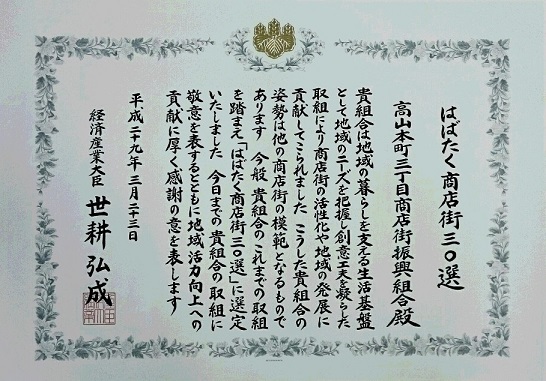 はばたく商店街三〇選
高山本町三丁目商店街振興組合殿
貴組合は地域の暮らしを支える生活基盤
として地域のニーズを把握し創意工夫を凝らした
取組により商店街の活性化や地域の発展に
貢献してこられました こうした貴組合の
姿勢は他の商店街の模範となるもので
あります 今般 貴組合のこれまでの取組
を踏まえ「はばたく商店街三〇選」に選定
いたしました 今日までの貴組合の取組に
敬意を表するとともに地域活力向上への
貢献に厚く感謝の意を表します
平成二十九年三月二十三日
経済産業大臣 世耕弘成